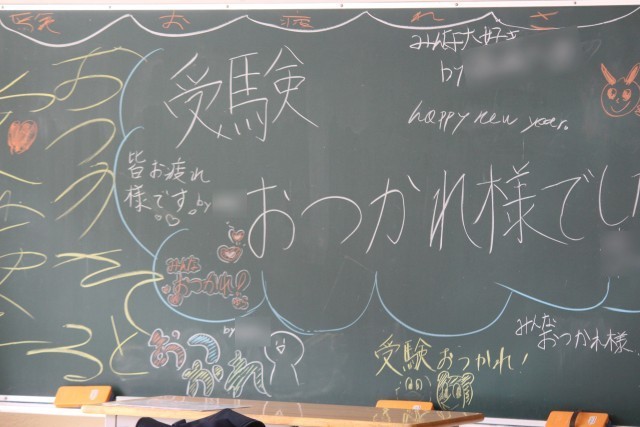 験 お 疲 れ さ
みんな大好き
by
happy new year.
受験
おつかれ様でし
皆お疲れ
様です。by
みんな
おつかれ!
by
おつ
かれ
受験おつかれ!
みんな
おつかれ様